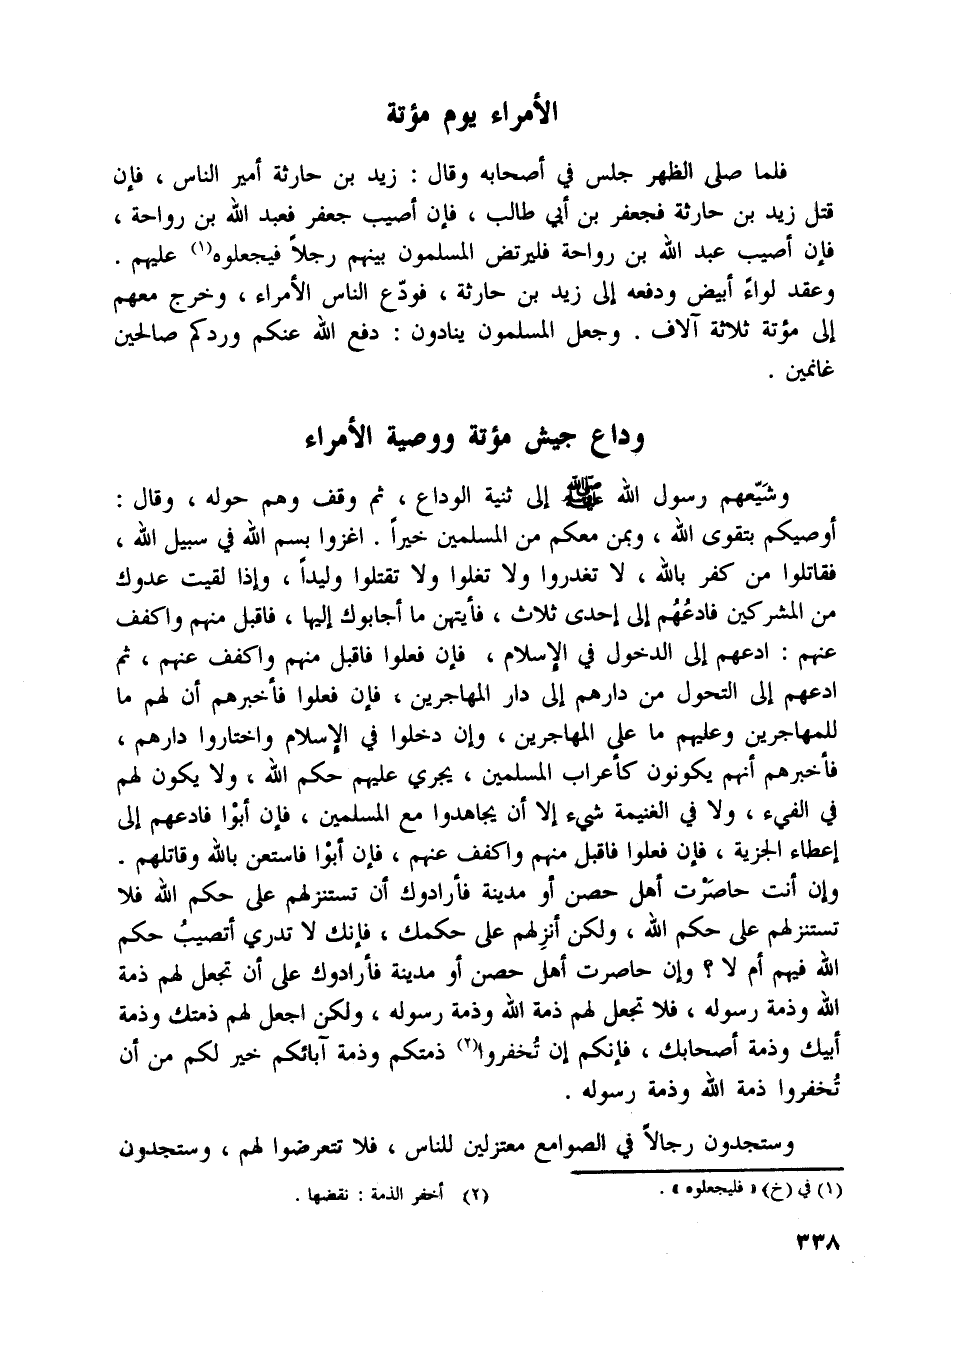 الأمراء يوم مؤتة
فلما صلى الظهر جلس في أصحابه وقال : زيد بن حارثة أمير الناس ، فإن
قتل زيد بن حارثة فجعفر بن أبي طالب ، فإن أصيب جعفر فعبد الله بن رواحة ،
فإن أصيب عبد الله بن رواحة فليرتض المسلمون بينهم رجلاً فيجعلوه(١) عليهم .
وعقد لواءً أبيض ودفعه إلى زيد بن حارثة ، فودّع الناس الأمراء ، وخرج معهم
إلى مؤتة ثلاثة آلاف . وجعل المسلمون ينادون : دفع الله عنكم وردكم صالحين
غانمين .
وداع جيش مؤتة ووصية الأمراء
وشَيّعهم رسول الله ﷺ إلى ثنية الوداع ، ثم وقف وهم حوله ، وقال :
أوصيكم بتقوى الله ، وبمن معكم من المسلمين خيراً . اغزوا بسم الله في سبيل الله ،
فقاتلوا من كفر بالله ، لا تغدروا ولا تغلوا ولا تقتلوا وليداً ، وإذا لقيت عدوك
من المشركين فادعُهُم إلى إحدى ثلاث ، فأيتهن ما أجابوك إليها ، فاقبل منهم واكفف
عنهم : ادعهم إلى الدخول في الإسلام ، فإن فعلوا فاقبل منهم واكفف عنهم ، ثم
ادعهم إلى التحول من دارهم إلى دار المهاجرين ، فإن فعلوا فأخبرهم أن لهم ما
للمهاجرين وعليهم ما على المهاجرين ، وإن دخلوا في الإسلام واختاروا دارهم ،
فأخبرهم أنهم يكونون كأعراب المسلمين ، يجري عليهم حكم الله ، ولا يكون لهم
في الفيء ، ولا في الغنيمة شيء إلا أن يجاهدوا مع المسلمين ، فإن أبوْا فادعهم إلى
إعطاء الجزية ، فإن فعلوا فاقبل منهم واكفف عنهم ، فإن أبوْا فاستعن بالله وقاتلهم .
وإن أنت حاصَرْت أهل حصن أو مدينة فأرادوك أن تستنزلهم على حكم الله فلا
تستنزلهم على حكم الله ، ولكن أنزِلهم على حكمك ، فإنك لا تدري أتصيبُ حكم
الله فيهم أم لا ؟ وإن حاصرت أهل حصن أو مدينة فأرادوك على أن تجعل لهم ذمة
الله وذمة رسوله ، فلا تجعل لهم ذمة الله وذمة رسوله ، ولكن اجعل لهم ذمتك وذمة
أبيك وذمة أصحابك ، فإنكم إن تُخفروا(٢) ذمتكم وذمة آبائكم خير لكم من أن
تُخفروا ذمة الله وذمة رسوله .
وستجدون رجالاً في الصوامع معتزلين للناس ، فلا تتعرضوا لهم ، وستجدون
(١) في (خ) « فليجعلوه » . (٢) أخفر الذمة : نقضها .
٣٣٨